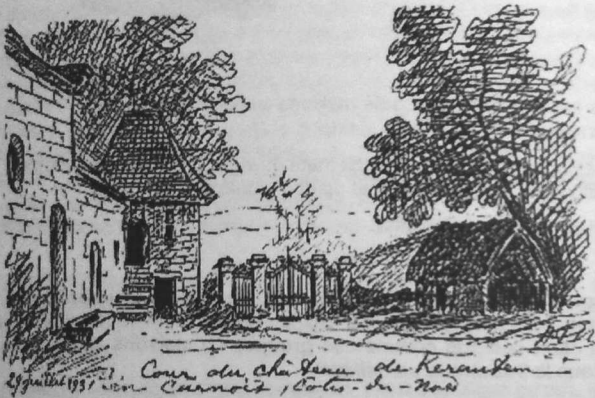 Cour du château de Kerautem
29 juillet 1931 en Carnoët, Côtes-du-Nord